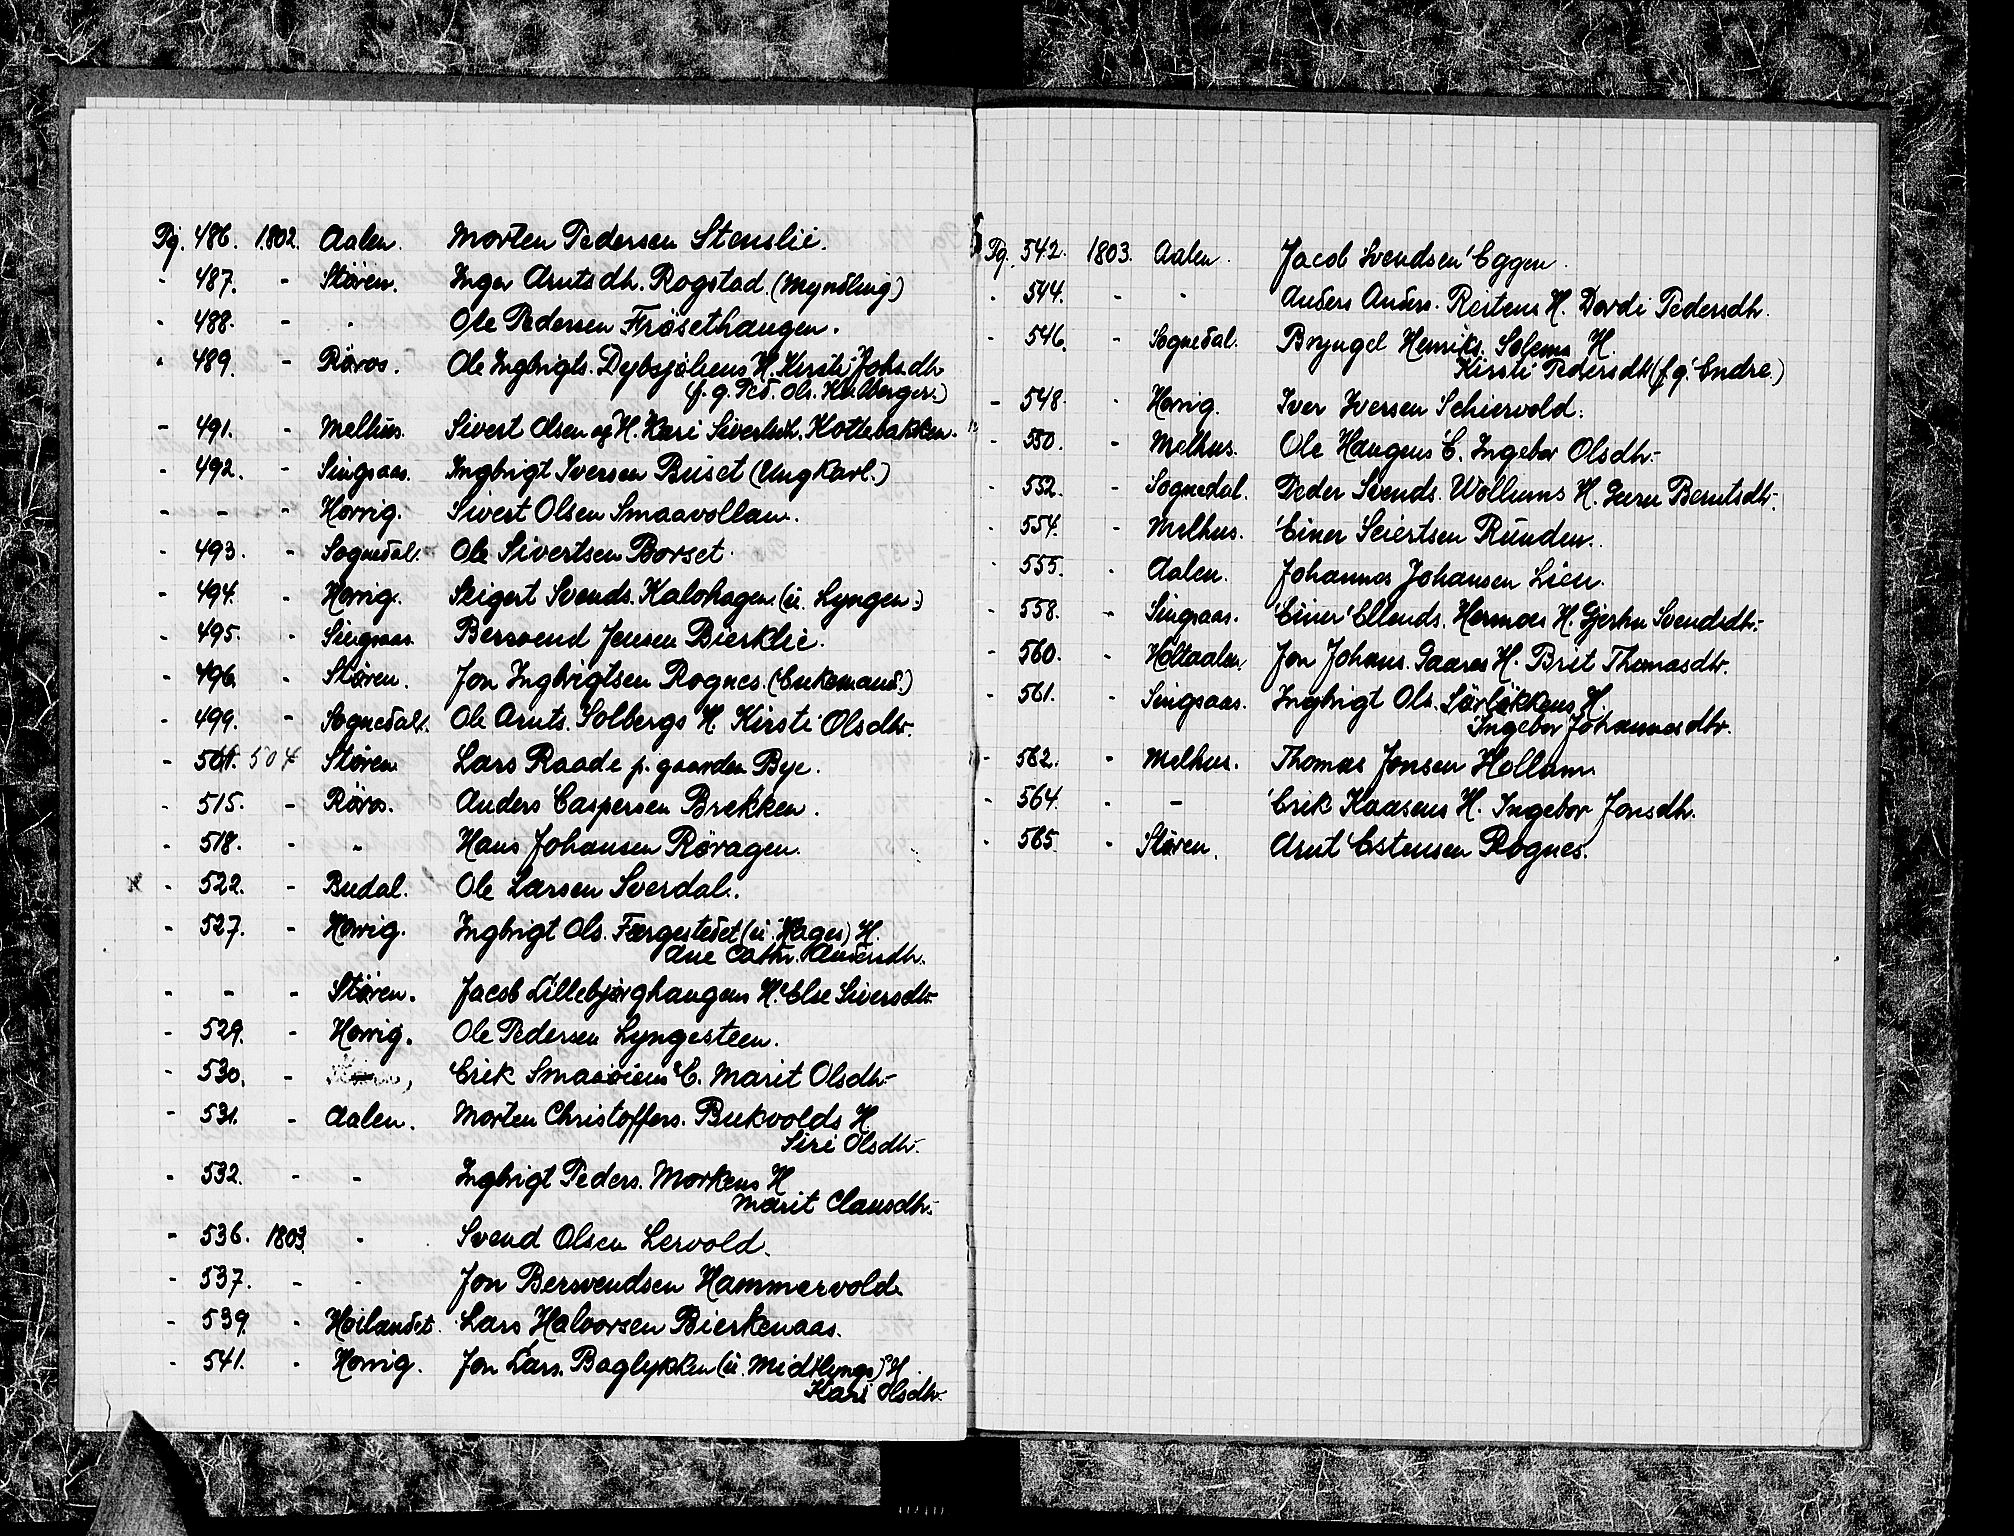 Pg. 486. 1802. Aalen. Morten Pedersen Stenslie.
- 487. - Støren. Inger Arntsdtr. Rogstad. (Myndling)
- 488. - - Ole Pedersen Frøsethaugen.
- 489. - Røros. Ole Ingbrigts. Dybsjøliens H. Kirsti Johsdtr
(f. g. Ped. Ols. Kulberger.)
- 491. - Melhus. Sivert Olsen og H. Kari Sivertsdt. Kottebakken.
- 492. - Singsaas. Ingbrigt Iversen Buset (Ungkarl.)
- - - Horrig. Sivert Olsen Smaavollan.
- 493. - Sognedal. Ole Sivertsen Borset.
- 494. - Horrig. Seigert Svends. Kalvhagen (u. Lyngen.)
- 495. - Singsaas. Bersvend Jensen Bierklie.
- 496. - Støren. Jon Ingbrigtsen Rognes. (Enkemand.)
- 499. - Sognedal. Ole Arnts. Solbergs H Kirsti Olsdtr.
- 501. 504 Støren Lars Raade p. gaarden Bye.
- 515. - Røros. Anders Caspersen Brekken.
- 518. - Hans Johansen Røragen.
x - 522. - Budal. Ole Larsen Sverdal.
- 527. - Horrig. Ingbrigt Ols. Færgestedet (u. Hages) H.
Ane Cathr. Andersdtr.
- - - Støren. Jacob Lillebjørghaugens H. Else Siversdtr.
- 529. - Horrig. Ole Pedersen Lyngesteen.
- 530. - Erik Smaaøiens E. Marit Olsdtr.
- 531. - Aalen. Morten Christoffers. Bukvolds H.
Siri Olsdtr.
- 532. - - Ingbrigt Peders. Morkens H
Marit Clausdtr.
- 536. 1803 - Svend Olsen Lervold.
- 537. - - Jon Bersvendsen Hammervold.
- 539. - Høilandet. Lars Halvorsen Bierkenaas.
- 541. - Horrig. Jon Lars. Baglykken (u. Midtlyngs) H.
Kari Olsdtr.
Pg. 542. 1803. Aalen. Jacob Svendsen Eggen.
- 544. - - Anders Anders. Reitens H. Dordi Pedersdtr.
- 546. - Sognedal. Bryngel Henriks. Solems H.
Kirsti Pedersdtr (f. g. Endre.)
- 548. - Horrig. Iver Iversen Schiervold.
- 550. - Melhus. Ole Haugens E. Ingebor Olsdtr.
- 552. - Sognedal. Peder Svends. Wollums H. Guru Berntsdtr.
- 554. - Melhus. Einer Seiertsen Runden.
- 555. - Aalen. Johannes Johansen Lien.
- 558. - Singsaas. Einer Ellends. Hermoes H. Gjertru Svendsdtr.
- 560. - Holtaalen. Jon Johans. Gaares H. Brit Thomasdtr.
- 561. - Singsaas. Ingbrigt Ols. Sørløkkens H.
Ingebor Johannesdtr.
- 562. - Melhus. Thomas Jonsen Hollum.
- 564. - - Erik Kaasens H. Ingebor Jonsdtr.
- 565. - Støren. Arnt Estensen Rognes.